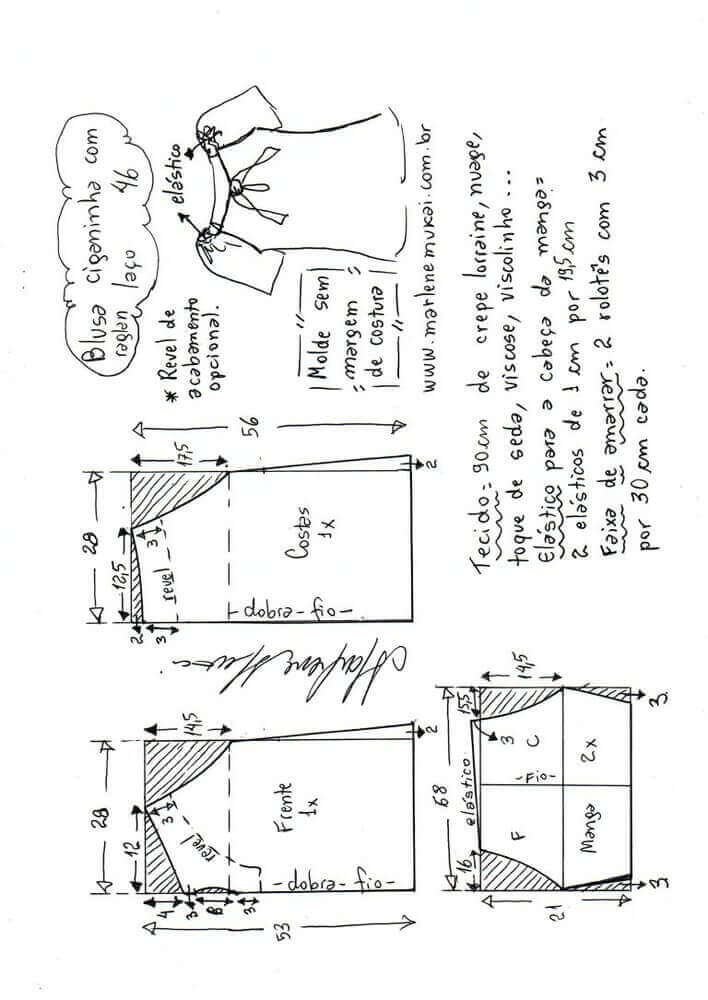 Blusa ciganinha com
raglan laço 46
* Revel de
acabamento
opcional.
elástico
Molde sem
margem
de costura
www.marlenemukai.com.br
Tecido = 90cm de crepe lorraine, nuage,
toque de seda, viscose, viscolinho ...
Elástico para a cabeça da manga =
2 elásticos de 1 cm por 19,5 cm
Faixa de amarrar = 2 rolotês com 3 cm
por 30 cm cada.
28
12,5
17,5
56
2
3
3
revel
Costas
1x
-dobra-fio-
2
28
12
14,5
53
4
3
8
3
3
revel
Frente
1x
-dobra-fio-
2
Marlene Mukai
68
elástico
16
15,5
14,5
21
3
F
C
-Fio-
Manga
2x
3
3